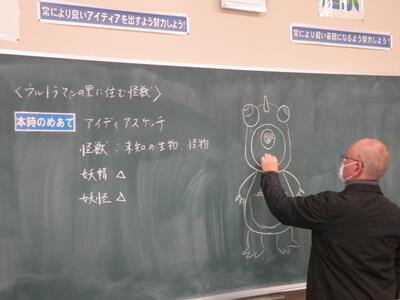 常により良いアイディアを出すよう努力しよう!
常により良い基礎になるよう努力しよう!
<ウルトラマンの星に住む怪獣>
本時のめあて アイディアスケッチ
怪獣:未知の生物、怪物
妖精 △
妖怪 △